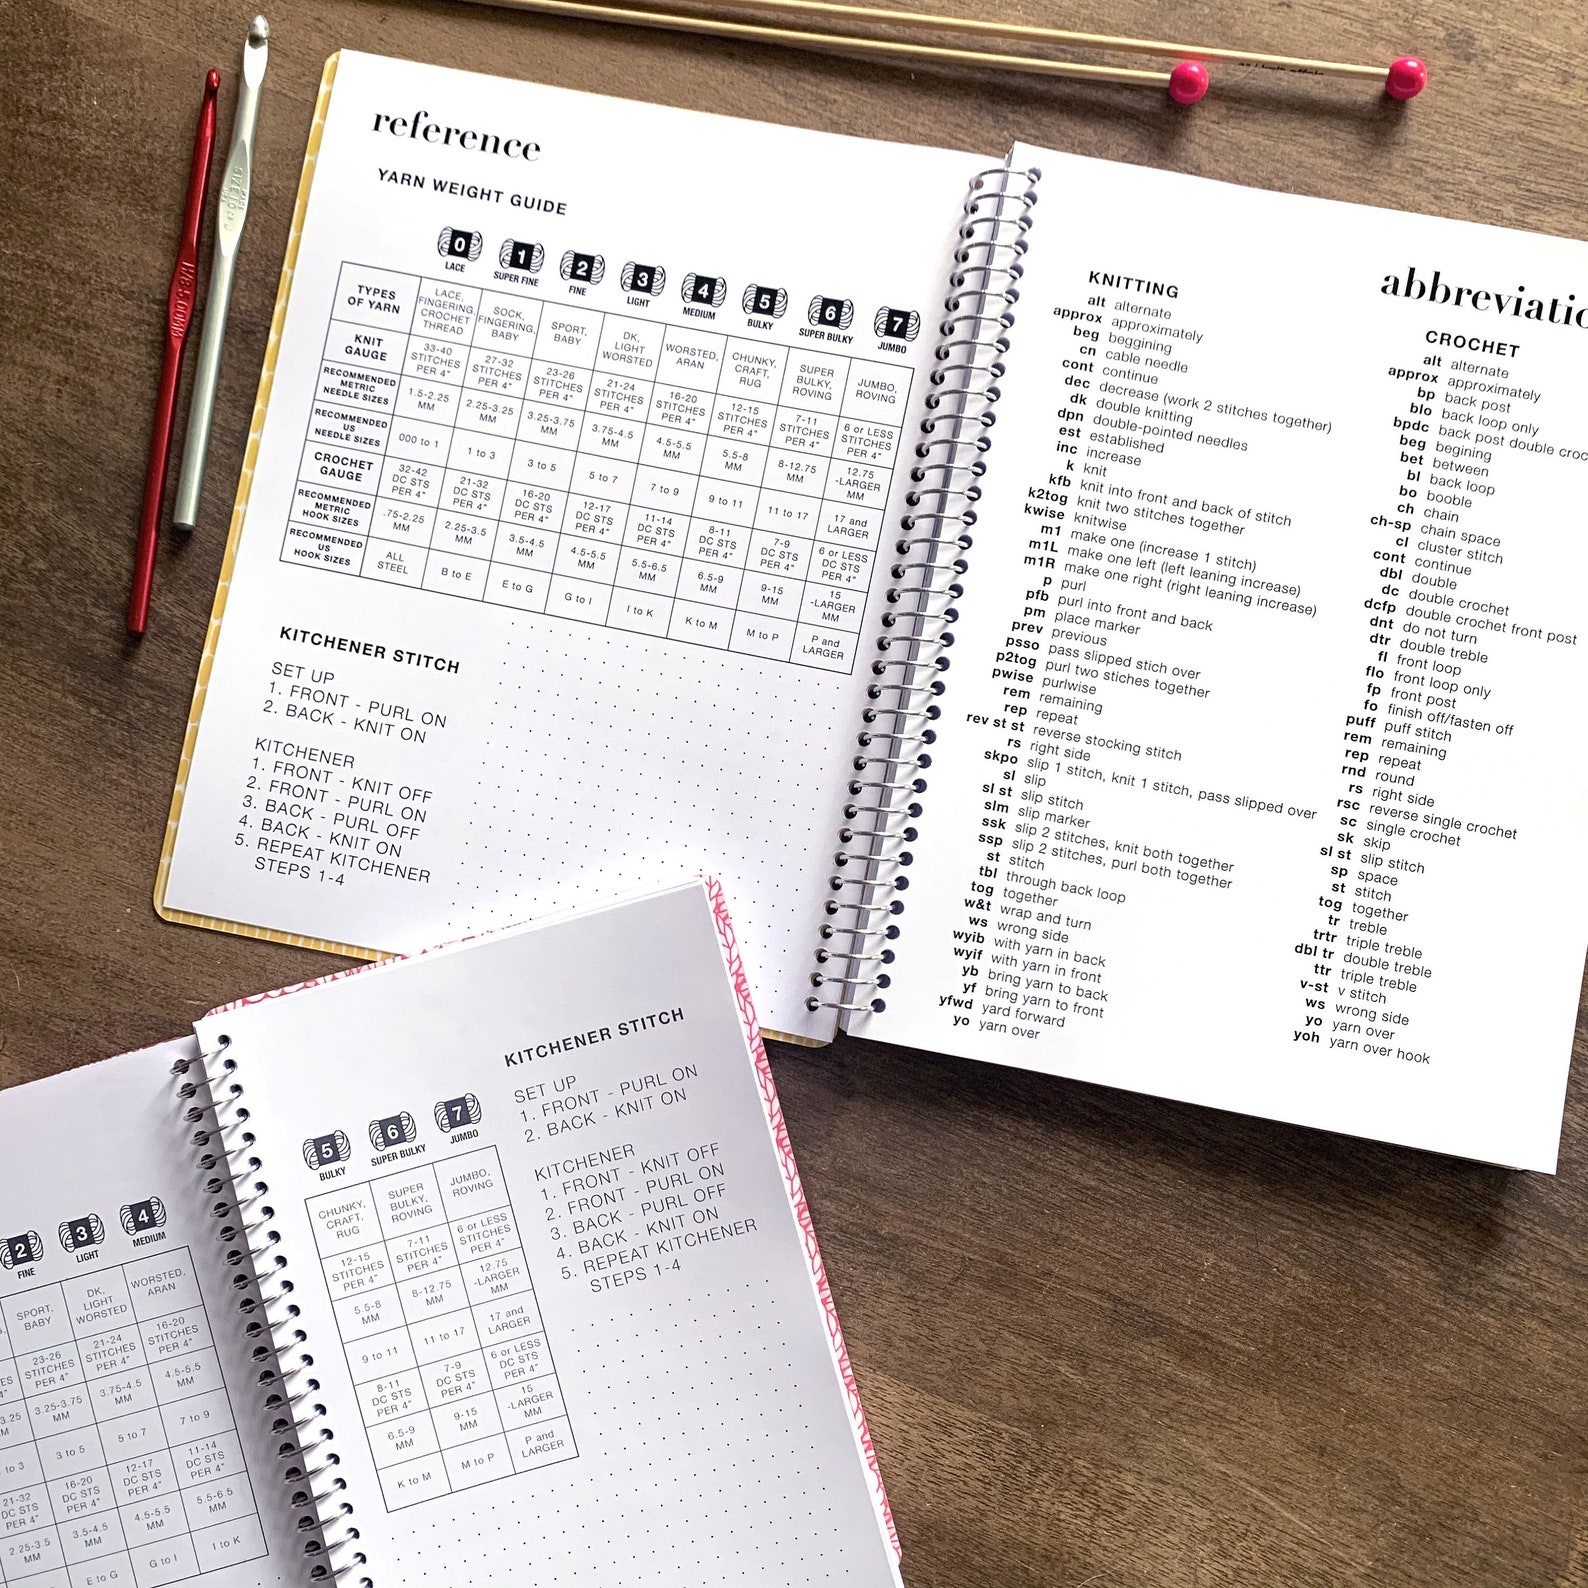 reference
YARN WEIGHT GUIDE
0 1 2 3 4 5 6 7
LACE SUPER FINE FINE LIGHT MEDIUM BULKY SUPER BULKY JUMBO
TYPES OF YARN
LACE, FINGERING, CROCHET THREAD
SOCK, FINGERING, BABY
SPORT, BABY
DK, LIGHT WORSTED
WORSTED, ARAN
CHUNKY, CRAFT, RUG
SUPER BULKY, ROVING
JUMBO, ROVING
KNIT GAUGE
33-40 STITCHES PER 4"
27-32 STITCHES PER 4"
23-26 STITCHES PER 4"
21-24 STITCHES PER 4"
16-20 STITCHES PER 4"
12-15 STITCHES PER 4"
7-11 STITCHES PER 4"
6 or LESS STITCHES PER 4"
RECOMMENDED METRIC NEEDLE SIZES
1.5-2.25 MM
2.25-3.25 MM
3.25-3.75 MM
3.75-4.5 MM
4.5-5.5 MM
5.5-8 MM
8-12.75 MM
12.75 -LARGER MM
RECOMMENDED US NEEDLE SIZES
000 to 1
1 to 3
3 to 5
5 to 7
7 to 9
9 to 11
11 to 17
17 and LARGER
CROCHET GAUGE
32-42 DC STS PER 4"
21-32 DC STS PER 4"
16-20 DC STS PER 4"
12-17 DC STS PER 4"
11-14 DC STS PER 4"
8-11 DC STS PER 4"
7-9 DC STS PER 4"
6 or LESS DC STS PER 4"
RECOMMENDED METRIC HOOK SIZES
.75-2.25 MM
2.25-3.5 MM
3.5-4.5 MM
4.5-5.5 MM
5.5-6.5 MM
6.5-9 MM
9-15 MM
15 -LARGER MM
RECOMMENDED US HOOK SIZES
ALL STEEL
B to E
E to G
G to I
I to K
K to M
M to P
P and LARGER
KITCHENER STITCH
SET UP
1. FRONT - PURL ON
2. BACK - KNIT ON
KITCHENER
1. FRONT - KNIT OFF
2. FRONT - PURL ON
3. BACK - PURL OFF
4. BACK - KNIT ON
5. REPEAT KITCHENER
STEPS 1-4
KNITTING
alt alternate
approx approximately
beg beggining
cn cable needle
cont continue
dec decrease (work 2 stitches together)
dk double knitting
dpn double-pointed needles
est established
inc increase
k knit
kfb knit into front and back of stitch
k2tog knit two stitches together
kwise knitwise
m1 make one (increase 1 stitch)
m1L make one left (left leaning increase)
m1R make one right (right leaning increase)
p purl
pfb purl into front and back
pm place marker
prev previous
psso pass slipped stich over
p2tog purl two stiches together
pwise purlwise
rem remaining
rep repeat
rev st st reverse stocking stitch
rs right side
skpo slip 1 stitch, knit 1 stitch, pass slipped over
sl slip
sl st slip stitch
slm slip marker
ssk slip 2 stitches, knit both together
ssp slip 2 stitches, purl both together
st stitch
tbl through back loop
tog together
w&t wrap and turn
ws wrong side
wyib with yarn in back
wyif with yarn in front
yb bring yarn to back
yf bring yarn to front
yfwd yard forward
yo yarn over
abbreviatio
CROCHET
alt alternate
approx approximately
bp back post
blo back loop only
bpdc back post double croc
beg begining
bet between
bl back loop
bo booble
ch chain
ch-sp chain space
cl cluster stitch
cont continue
dbl double
dc double crochet
dcfp double crochet front post
dnt do not turn
dtr double treble
fl front loop
flo front loop only
fp front post
fo finish off/fasten off
puff puff stitch
rem remaining
rep repeat
rnd round
rs right side
rsc reverse single crochet
sc single crochet
sk skip
sl st slip stitch
sp space
st stitch
tog together
tr treble
trtr triple treble
dbl tr double treble
ttr triple treble
v-st v stitch
ws wrong side
yo yarn over
yoh yarn over hook
H/8-5.00MM
SIZE
2 3 4
FINE LIGHT MEDIUM
SPORT, BABY
DK, LIGHT WORSTED
WORSTED, ARAN
23-26 STITCHES PER 4"
21-24 STITCHES PER 4"
16-20 STITCHES PER 4"
3.25
MM
3.25-3.75 MM
3.75-4.5 MM
4.5-5.5 MM
to 3
3 to 5
5 to 7
7 to 9
21-32 DC STS PER 4"
16-20 DC STS PER 4"
12-17 DC STS PER 4"
11-14 DC STS PER 4"
2.25-3.5 MM
3.5-4.5 MM
4.5-5.5 MM
5.5-6.5 MM
E to G
G to I
I to K
5 6 7
BULKY SUPER BULKY JUMBO
CHUNKY, CRAFT, RUG
SUPER BULKY, ROVING
JUMBO, ROVING
12-15 STITCHES PER 4"
7-11 STITCHES PER 4"
6 or LESS STITCHES PER 4"
5.5-8 MM
8-12.75 MM
12.75 -LARGER MM
9 to 11
11 to 17
17 and LARGER
8-11 DC STS PER 4"
7-9 DC STS PER 4"
6 or LESS DC STS PER 4"
6.5-9 MM
9-15 MM
15 -LARGER MM
K to M
M to P
P and LARGER
KITCHENER STITCH
SET UP
1. FRONT - PURL ON
2. BACK - KNIT ON
KITCHENER
1. FRONT - KNIT OFF
2. FRONT - PURL ON
3. BACK - PURL OFF
4. BACK - KNIT ON
5. REPEAT KITCHENER
STEPS 1-4